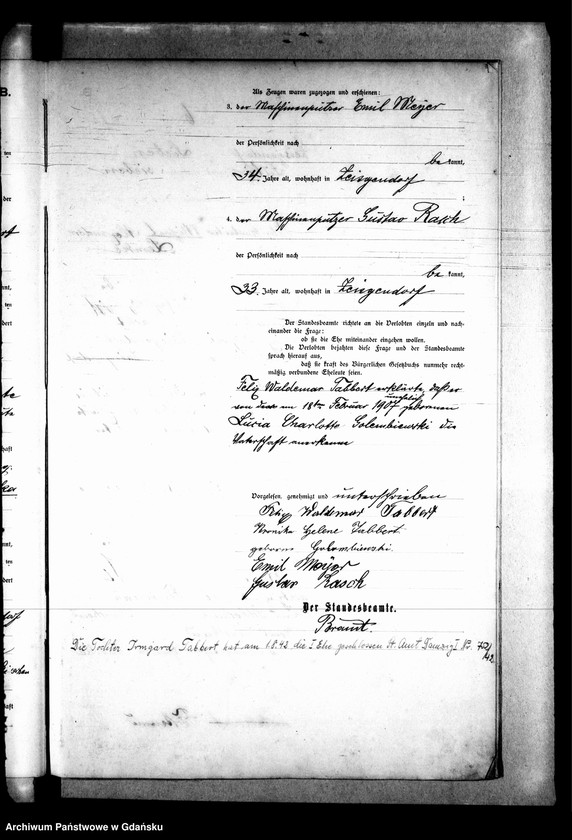 B.
Als Zeugen waren zugezogen und erschienen:
3. der Maschinenputzer Emil Meyer
der Persönlichkeit nach
be kannt,
34 Jahre alt, wohnhaft in Zeisgendorf
;
4. der Maschinenputzer Gustav Rasch
der Persönlichkeit nach
be kannt,
33 Jahre alt, wohnhaft in Zeisgendorf
Der Standesbeamte richtete an die Verlobten einzeln und nach-
einander die Frage:
ob sie die Ehe miteinander eingehen wollen.
Die Verlobten bejahten diese Frage und der Standesbeamte
sprach hierauf aus,
daß sie kraft des Bürgerlichen Gesetzbuchs nunmehr recht-
mäßig verbundene Eheleute seien.
Felix Waldemar Tabbert erklärte, daß er
von der am 18ten Februar 1907 unehelich geborenen
Lucia Charlotte Golembiewski die
Vaterschaft anerkenne
Vorgelesen, genehmigt und unterschrieben
Felix Waldemar Tabbert
Veronika Helene Tabbert
geborene Golembiewski.
Emil Meyer
Gustav Rasch
Der Standesbeamte.
Brandt.
Die Tochter Irmgard Tabbert, hat am 1.8.42 die I Ehe geschlossen St. Amt Danzig I Nr.
/42
Archiwum Państwowe w Gdańsku